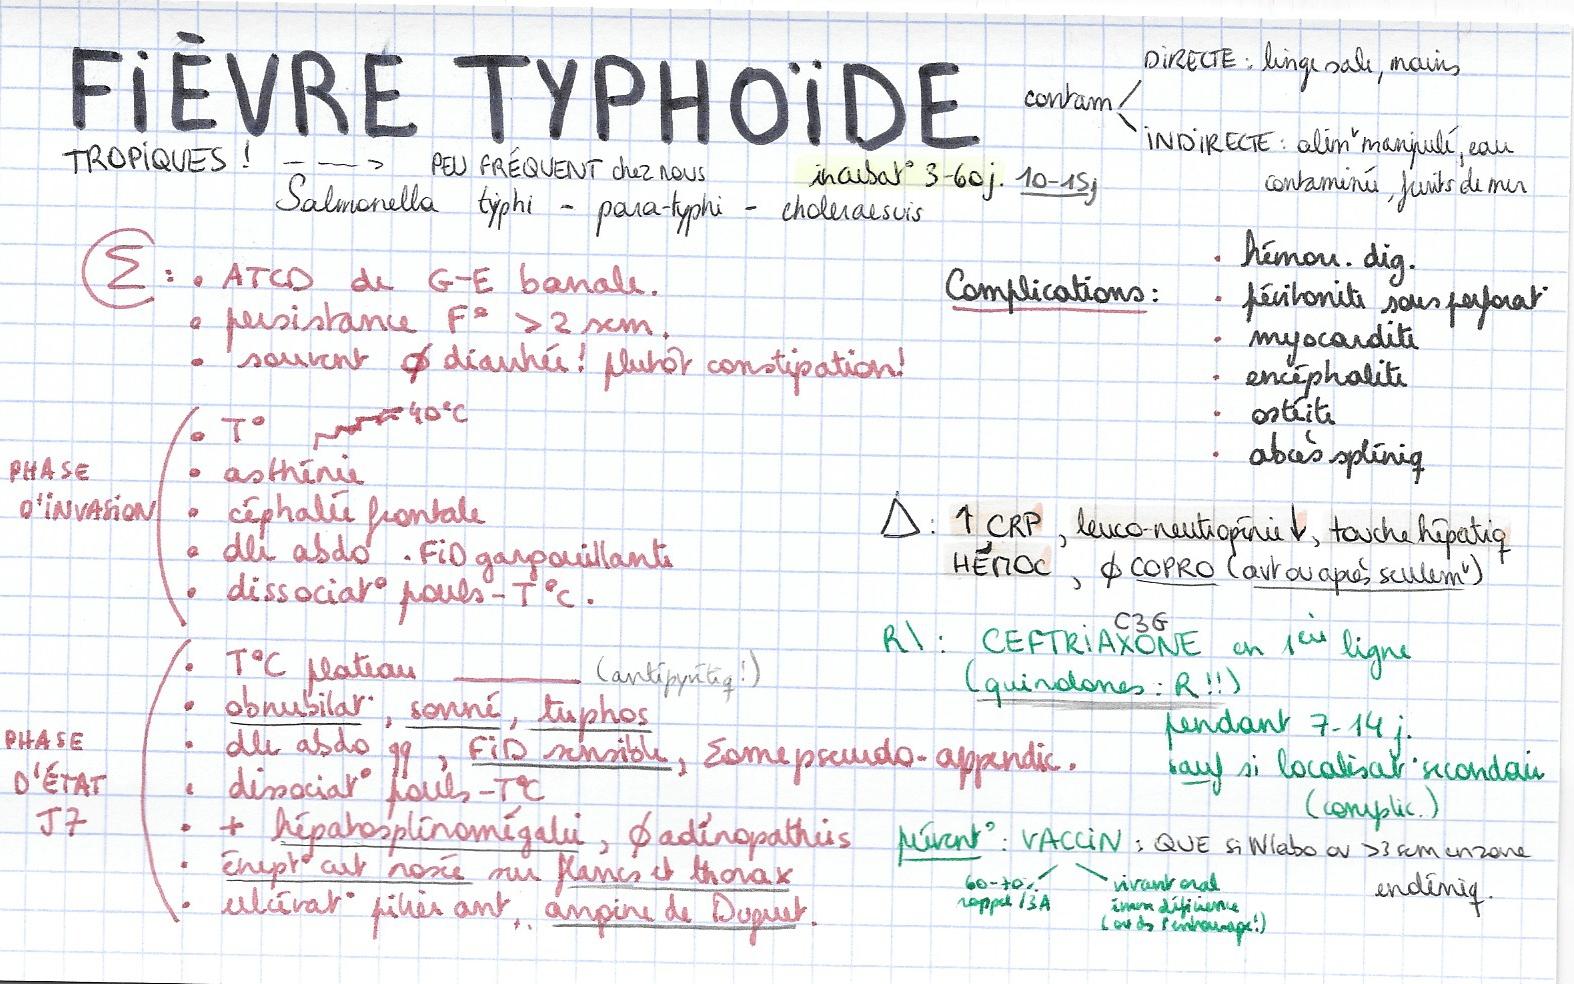 FIÈVRE TYPHOÏDE
contam
DIRECTE : linge sale, mains
INDIRECTE : alim^t manipulé, eau
contaminée, fruits de mer
TROPIQUES ! - - -> PEU FRÉQUENT chez nous
incubat° 3-60j. 10-15j
Salmonella typhi - para-typhi - choleraesuis
Σ : • ATCD de G-E banale.
• persistance F° > 2 sem.
• souvent ∅ diarrhée ! plutôt constipation !
PHASE
D'INVASION
• T° 40°C
• asthénie
• céphalée frontale
• dlr abdo . FID gargouillante
• dissociat° pouls-T°C.
PHASE
D'ÉTAT
J7
• T°C plateau (antipyrétiq !)
• obnubilat°, sonné, tuphos
• dlr abdo qq, FID sensible, Σome pseudo-appendic.
• dissociat° pouls-T°C
• + hépatosplénomégalie, ∅ adénopathies
• érupt° cut rosée sur flancs et thorax
• ulcérat° pilier ant., angine de Duguet.
Complications :
• hémorr. dig.
• péritonite sous perforat°
• myocardite
• encéphalite
• ostéite
• abcès spléniq
Δ : ↑ CRP, leuco-neutropénie ↓, touche hépatiq
HÉMOC, ∅ COPRO (avt ou après seulem^t)
C3G
R\ : CEFTRIAXONE en 1ère ligne
(quinolones : R !!)
pendant 7-14 j.
sauf si localisat° secondaire
(complic.)
prévent° : VACCIN : QUE si W labo ou >3 sem en zone
endémiq.
60-70%
rappel /3A
vivant oral
imm déficience
(ou ds l'entourage !)